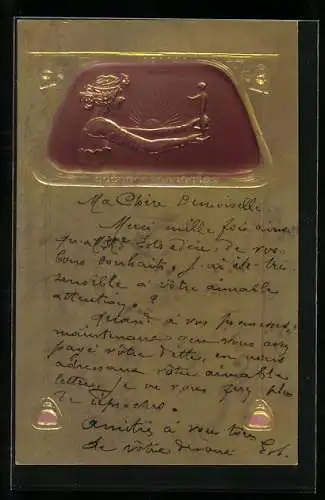 Ma Chère Demoiselle.
Merci mille fois ainsi
qu'à de vos
bons souhaits, j'ai été très
sensible à votre aimable
attention.
Quand à vos promesses,
maintenant que vous avez
payé votre dette, en nous
adressant votre aimable
lettre, je ne vous fery plus
de reproches.
Amitiés à vous tous
de votre dévoué